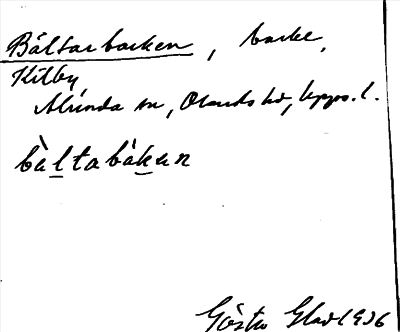 Bältarbacken, backe,
Kilby
Alunda sn, Olands hd, Upps. l.
bàltabákan
Gösta Glad 1936